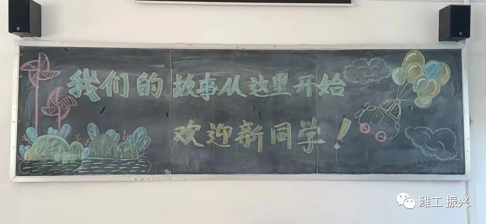 我们的故事从这里开始
欢迎新同学!
潍工 振兴